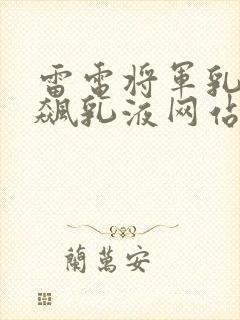 雷電将軍乳
飆乳液网佔
蘭萬安